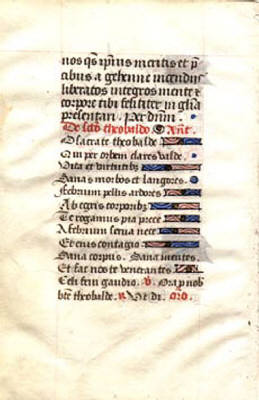 nos qs ipius meritis et p
cibus a gehenne incendiis
liberatos integros mente
corpore tibi feliciter in glia
presentari. Per dnm.
De scto theobaldo. Ant.
O sacrate theobalde
Qui per orbem clares valde.
Vita et virtutibz
Sanas morbos et langores.
Febrium pellis ardores
Ab egris corporibz
Te rogamus pia prece
A febrium serua nece
Et eius contagio.
Sana corpus. Sana mentes.
Et fac nos te venerantes
Celi frui gaudio. v. Ora p nob
bte theobalde. Vt di. Oro.